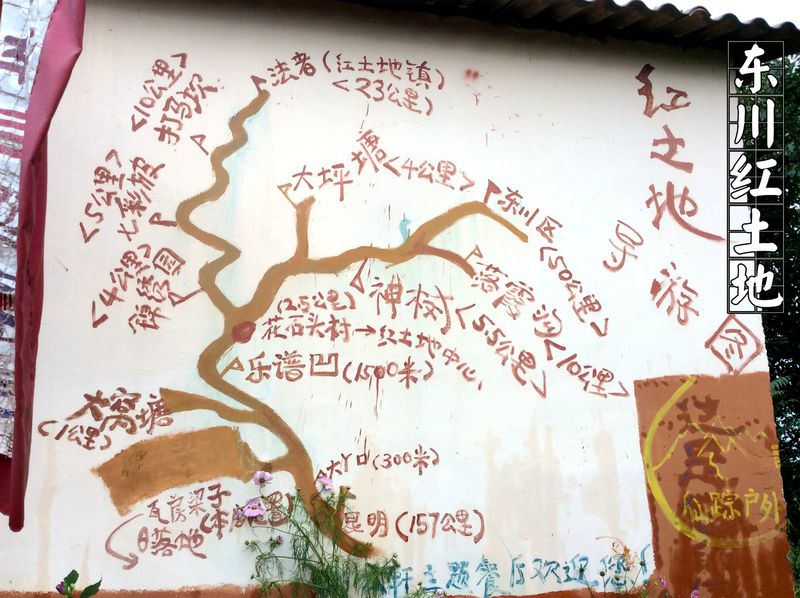 东川红土地
红土地
导游图
法者(红土地镇)
<23公里>
<10公里>
打马坎
<5公里>
七彩坡
<4公里>
锦绣园
大坪塘<4公里>
东川区
<50公里>
落霞沟<10公里>
神树<5.5公里>
(2.5公里)
花石头村→红土地中心
乐谱凹(1500米)
大窝塘
(1公里)
大丫口(300米)
瓦房梁子
日落地
昆明(157公里)
仙踪户外
主题餐厅欢迎您!